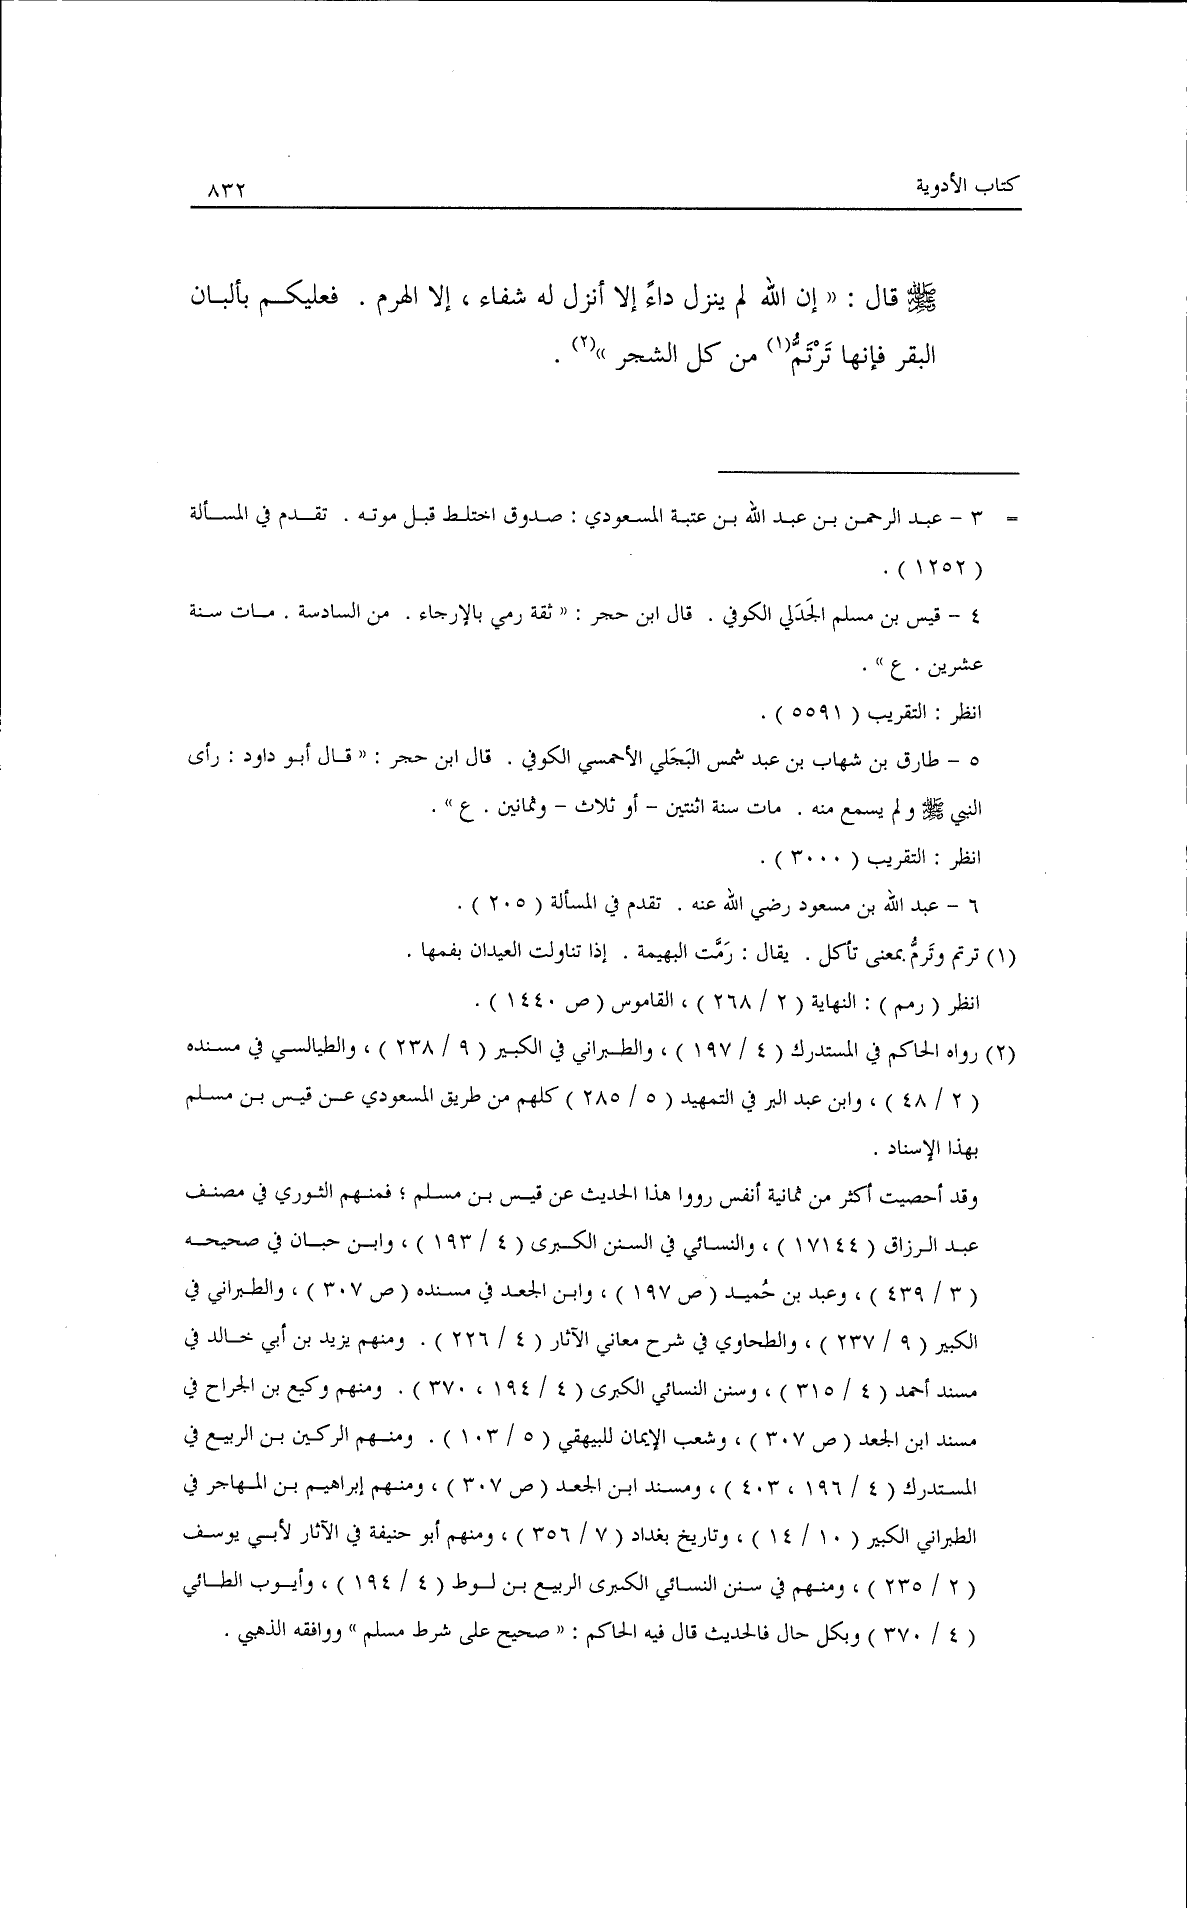 كتاب الأدوية
٨٣٢
ﷺ قال : « إن الله لم ينزل داءً إلا أنزل له شفاء ، إلا الهرم . فعليكم بألبان
البقر فإنها تَرْتَمُّ(١) من كل الشجر »(٢) .
= ٣ – عبد الرحمن بن عبد الله بن عتبة المسعودي : صدوق اختلط قبل موته . تقدم في المسألة
( ١٢٥٢ ) .
٤ – قيس بن مسلم الجَدَلي الكوفي . قال ابن حجر : « ثقة رمي بالإرجاء . من السادسة . مات سنة
عشرين . ع » .
انظر : التقريب ( ٥٥٩١ ) .
٥ – طارق بن شهاب بن عبد شمس البَجَلي الأحمسي الكوفي . قال ابن حجر : « قال أبو داود : رأى
النبي ﷺ ولم يسمع منه . مات سنة اثنتين – أو ثلاث – وثمانين . ع » .
انظر : التقريب ( ٣٠٠٠ ) .
٦ – عبد الله بن مسعود رضي الله عنه . تقدم في المسألة ( ٢٠٥ ) .
(١) ترتم وتَرمُّ بمعنى تأكل . يقال : رَمَّت البهيمة . إذا تناولت العيدان بفمها .
انظر ( رمم ) : النهاية ( ٢ / ٢٦٨ ) ، القاموس ( ص ١٤٤٠ ) .
(٢) رواه الحاكم في المستدرك ( ٤ / ١٩٧ ) ، والطبراني في الكبير ( ٩ / ٢٣٨ ) ، والطيالسي في مسنده
( ٢ / ٤٨ ) ، وابن عبد البر في التمهيد ( ٥ / ٢٨٥ ) كلهم من طريق المسعودي عن قيس بن مسلم
بهذا الإسناد .
وقد أحصيت أكثر من ثمانية أنفس رووا هذا الحديث عن قيس بن مسلم ؛ فمنهم الثوري في مصنف
عبد الرزاق ( ١٧١٤٤ ) ، والنسائي في السنن الكبرى ( ٤ / ١٩٣ ) ، وابن حبان في صحيحه
( ٣ / ٤٣٩ ) ، وعبد بن حُميد ( ص ١٩٧ ) ، وابن الجعد في مسنده ( ص ٣٠٧ ) ، والطبراني في
الكبير ( ٩ / ٢٣٧ ) ، والطحاوي في شرح معاني الآثار ( ٤ / ٢٢٦ ) . ومنهم يزيد بن أبي خالد في
مسند أحمد ( ٤ / ٣١٥ ) ، وسنن النسائي الكبرى ( ٤ / ١٩٤ ، ٣٧٠ ) . ومنهم وكيع بن الجراح في
مسند ابن الجعد ( ص ٣٠٧ ) ، وشعب الإيمان للبيهقي ( ٥ / ١٠٣ ) . ومنهم الركين بن الربيع في
المستدرك ( ٤ / ١٩٦ ، ٤٠٣ ) ، ومسند ابن الجعد ( ص ٣٠٧ ) ، ومنهم إبراهيم بن المهاجر في
الطبراني الكبير ( ١٠ / ١٤ ) ، وتاريخ بغداد ( ٧ / ٣٥٦ ) ، ومنهم أبو حنيفة في الآثار لأبي يوسف
( ٢ / ٢٣٥ ) ، ومنهم في سنن النسائي الكبرى الربيع بن لوط ( ٤ / ١٩٤ ) ، وأيوب الطائي
( ٤ / ٣٧٠ ) وبكل حال فالحديث قال فيه الحاكم : « صحيح على شرط مسلم » ووافقه الذهبي .